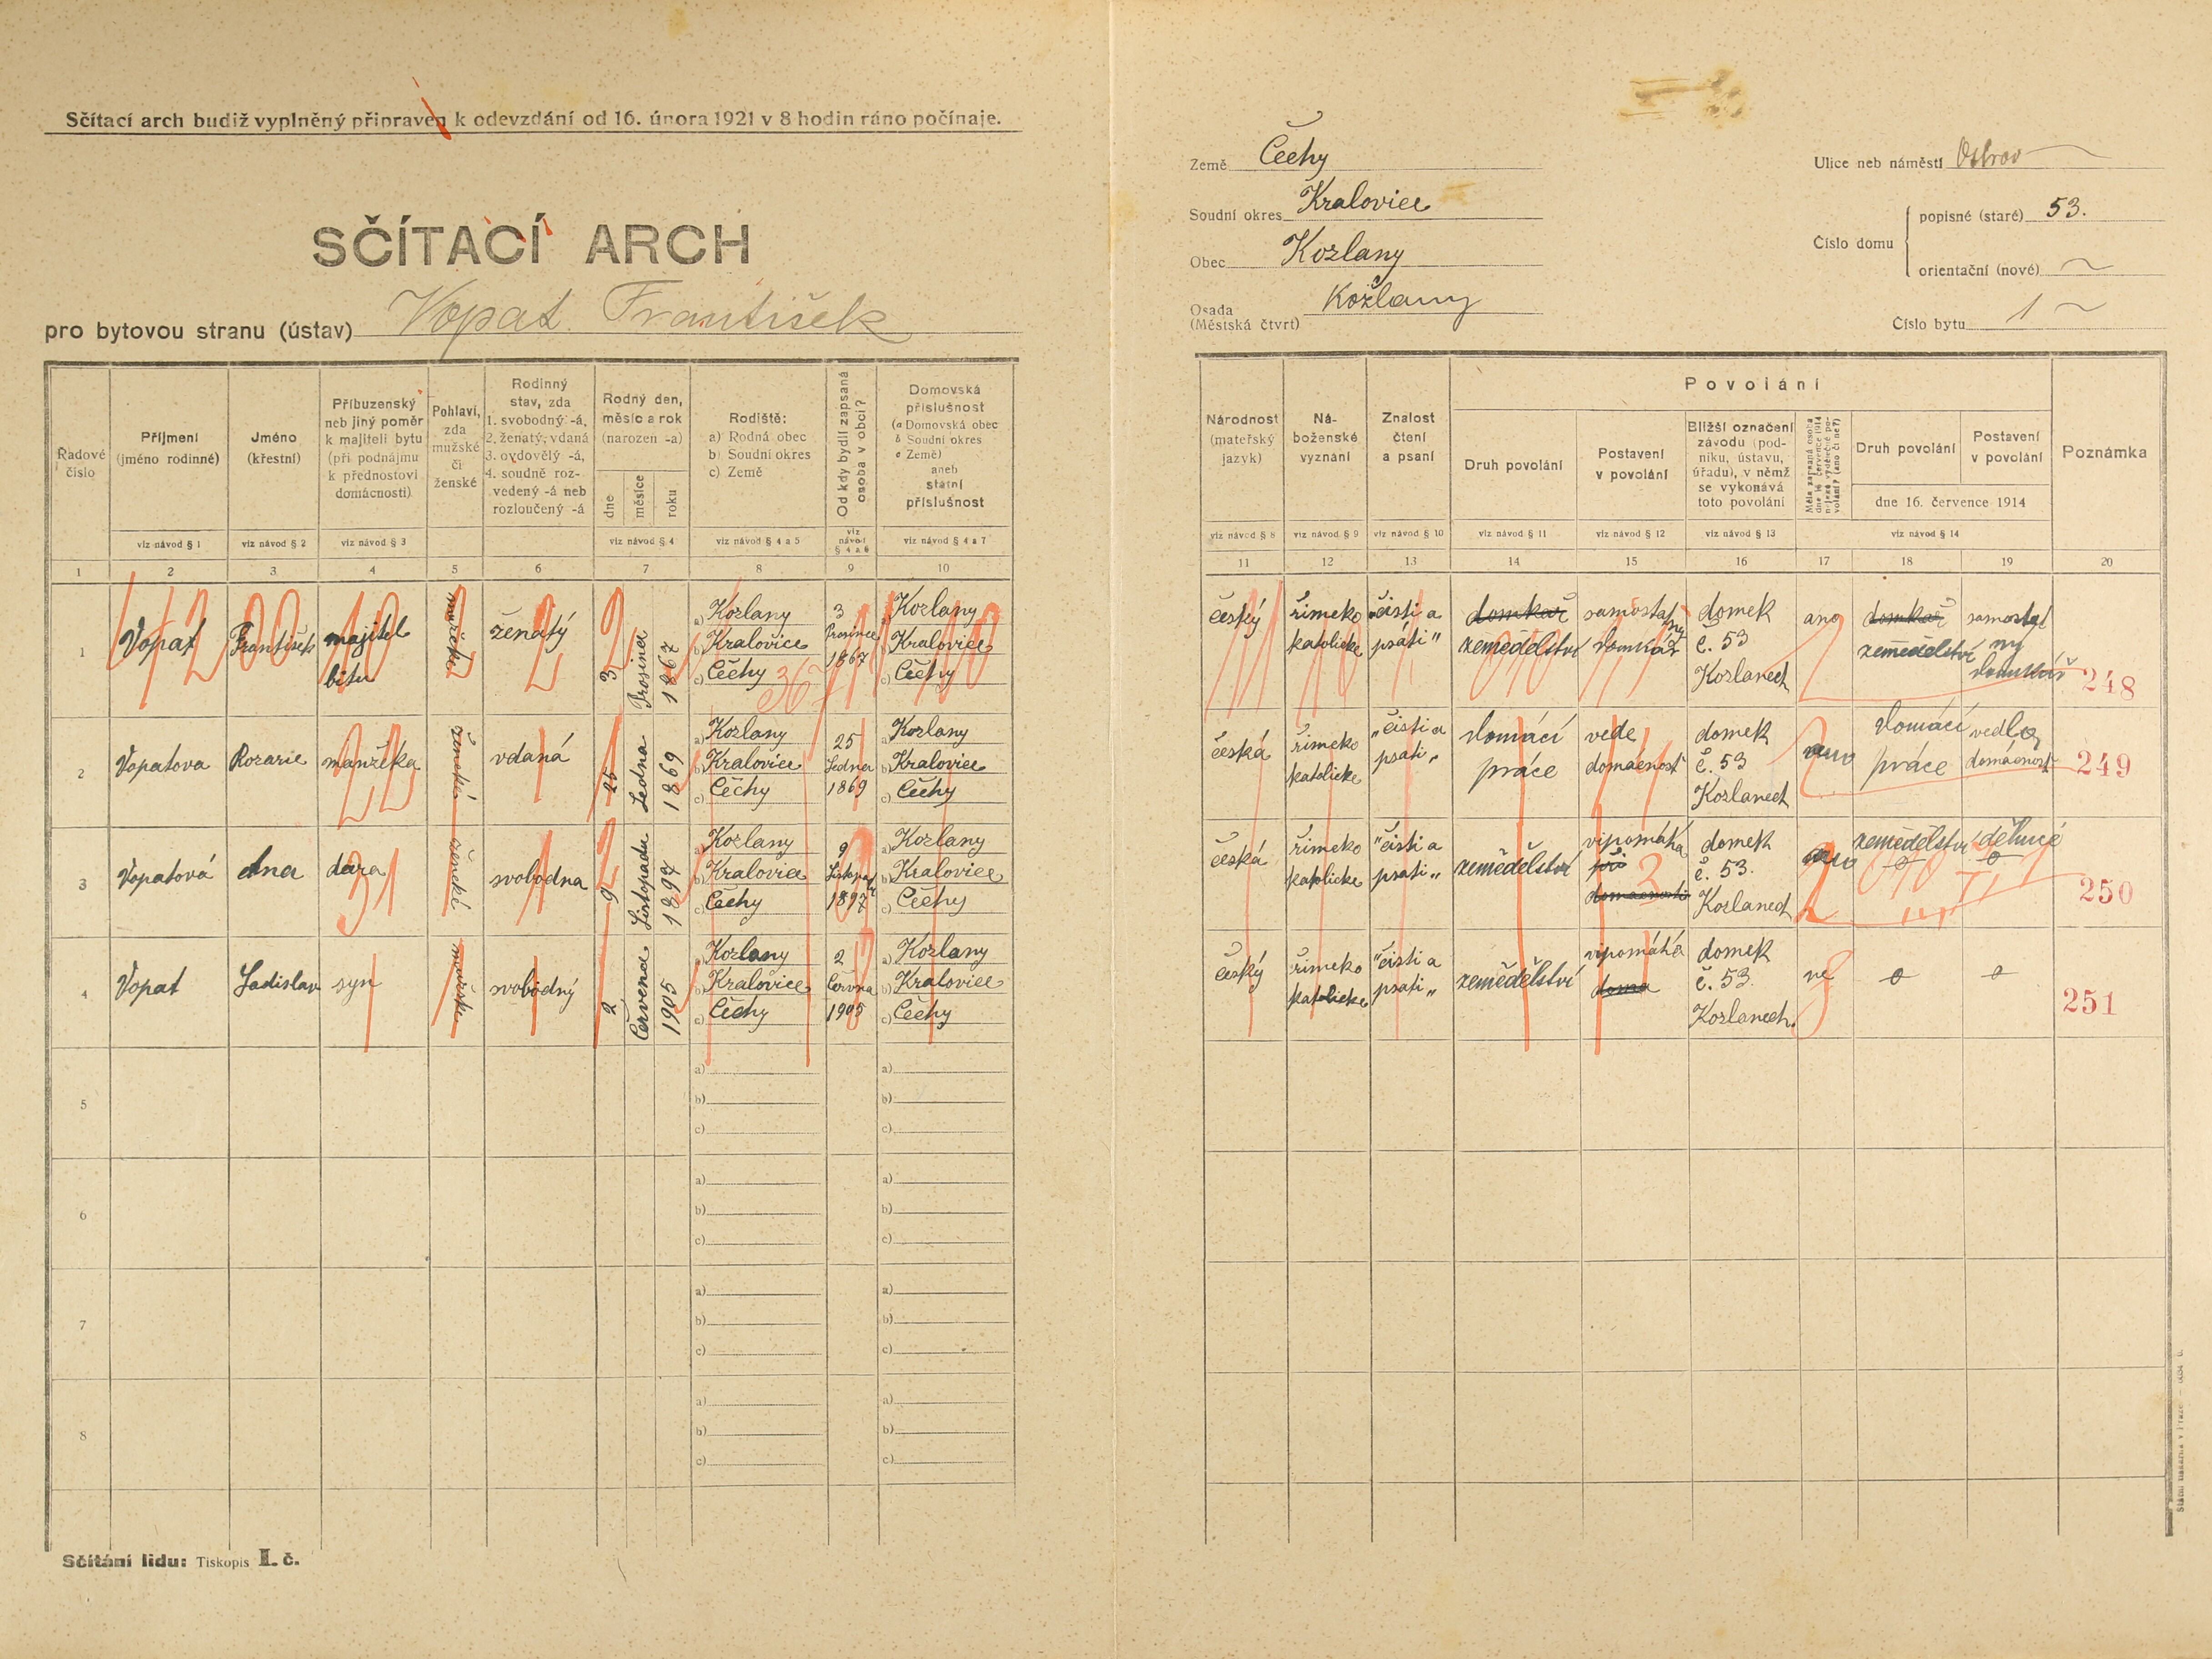 Sčítací arch budiž vyplněný připraven k odevzdání od 16. února 1921 v 8 hodin ráno počínaje.
SČÍTACÍ ARCH
pro bytovou stranu (ústav) Vopat František
Země Čechy
Soudní okres Kralovice
Obec Kozlany
Osada (Městská čtvrt) Kožlany
Ulice neb náměstí Ostrov
Číslo domu
popisné (staré) 53.
orientační (nové)
Číslo bytu 1
Řadové číslo
Příjmení (jméno rodinné)
Jméno (křestní)
Příbuzenský neb jiný poměr k majiteli bytu (při podnájmu k přednostovi domácnosti)
Pohlaví, zda mužské či ženské
Rodinný stav, zda 1. svobodný -á, 2. ženatý, vdaná 3. ovdovělý -á, 4. soudně rozvedený -á neb rozloučený -á
Rodný den, měsíc a rok (narozen -a)
dne měsíce roku
Rodiště: a) Rodná obec b) Soudní okres c) Země
Od kdy bydlí zapsaná osoba v obci?
Domovská příslušnost (a Domovská obec b Soudní okres c Země) aneb státní příslušnost
viz návod § 1 viz návod § 2 viz návod § 3 viz návod § 4 viz návod § 4 a 5 viz návod § 4 a 6 viz návod § 4 a 7
1 2 3 4 5 6 7 8 9 10
Národnost (mateřský jazyk)
Náboženské vyznání
Znalost čtení a psaní
Povolání
Druh povolání
Postavení v povolání
Bližší označení závodu (podniku, ústavu, úřadu), v němž se vykonává toto povolání
Měla zapsaná osoba dne 16. července 1914 nějaké výdělečné povolání? (ano či ne?)
Druh povolání
Postavení v povolání
dne 16. července 1914
Poznámka
viz návod § 8 viz návod § 9 viz návod § 10 viz návod § 11 viz návod § 12 viz návod § 13 viz návod § 14
11 12 13 14 15 16 17 18 19 20
1 Vopat František majitel bitu mužské ženatý 3 Prosince 1867
a) Kozlany b) Kralovice c) Čechy
3 Prosince 1867
a) Kozlany b) Kralovice c) Čechy
český římsko katolické „čisti a psáti" domkář zemědělství samostatný domkář domek č. 53 Kozlanech ano domkář zemědělství samostatny domkář 248
2 Vopatova Rozarie manželka ženské vdaná 25 Ledna 1869
a) Kozlany b) Kralovice c) Čechy
25 Ledna 1869
a) Kozlany b) Kralovice c) Čechy
česká římsko katolicke „čisti a psati" domácí práce vede domácnost domek č. 53 Kozlanech ano domácí práce vedla domácnost 249
3 Vopatová Ana dcera ženské svobodna 9 Listopadu 1897
a) Kozlany b) Kralovice c) Čechy
9 Listopadu 1897
a) Kozlany b) Kralovice c) Čechy
česká římsko katolicke "čisti a psati" zemědělství vipomáhá při domacnosti domek č. 53. Kozlanech ano zemědělství 250
4 Vopat Ladislav syn mužské svobodný 2 Července 1905
a) Kozlany b) Kralovice c) Čechy
2 Června 1905
a) Kozlany b) Kralovice c) Čechy
český římsko katolicke "čisti a psati" zemědělství vipomáhá doma domek č. 53. Kozlanech. ne o o 251
5 a) b) c) a) b) c)
6 a) b) c) a) b) c)
7 a) b) c) a) b) c)
8 a) b) c) a) b) c)
Sčítání lidu: Tiskopis I. č.